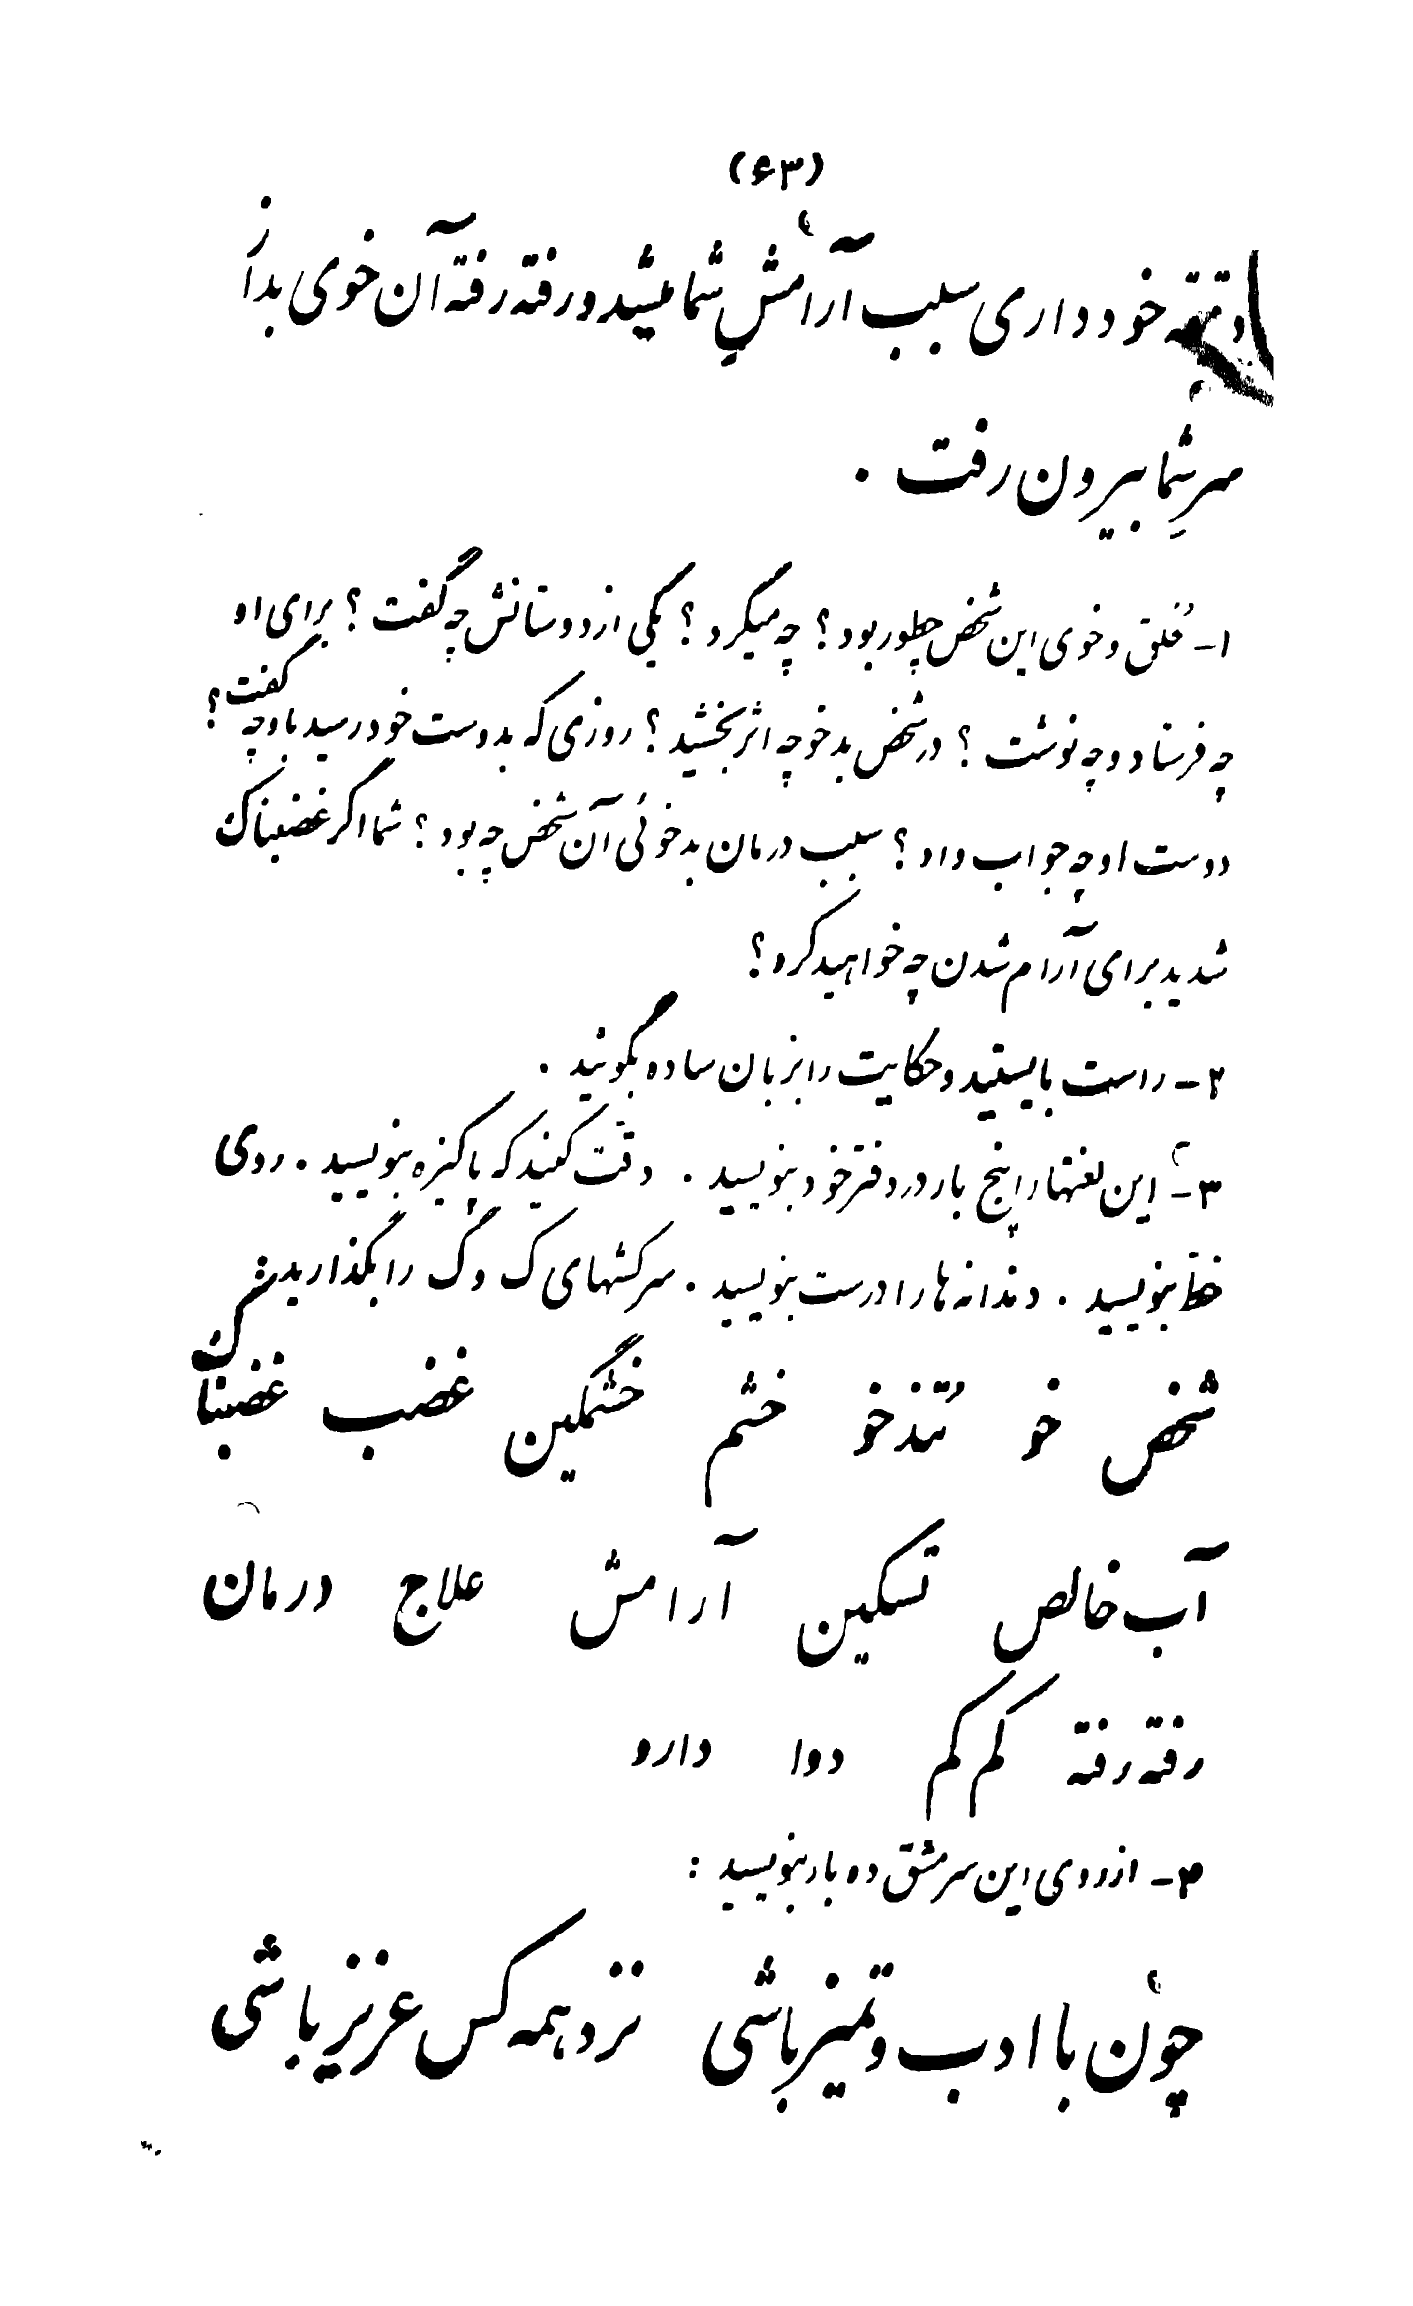 (۶۳)
دقیقه خودداری سبب آرامشِ شما میشد و رفته رفته آن خوی بد از
سرِ شما بیرون رفت .
۱ـ خُلق و خوی این شخص چطور بود ؟ چه میکرد ؟ یکی از دوستانش چه گفت ؟ برای او
چه فرستاد و چه نوشت ؟ در شخص بدخو چه اثر بخشید ؟ روزی که بدوست خود رسید باو چه گفت ؟
دوست او چه جواب داد ؟ سبب درمان بدخوئی آن شخص چه بود ؟ شما اگر غضبناک
شدید برای آرام شدن چه خواهید کرد ؟
۲ـ راست بایستید و حکایت را بزبان ساده بگوئید .
۳ـ این لغتها را پنج بار در دفتر خود بنویسید . دقّت کنید که پاکیزه بنویسید . روی
خطّ بنویسید . دندانه ها را درست بنویسید . سرکشهای ک و گ را بگذارید :
شخص خو تُندخو خشم خشمگین غضب غضبناک
آب خالص تسکین آرامش علاج درمان
رفته رفته کم کم دوا دارو
۴ـ از روی این سرمشق ده بار بنویسید :
چون با ادب و تمیز باشی نزد همه کس عزیز باشی